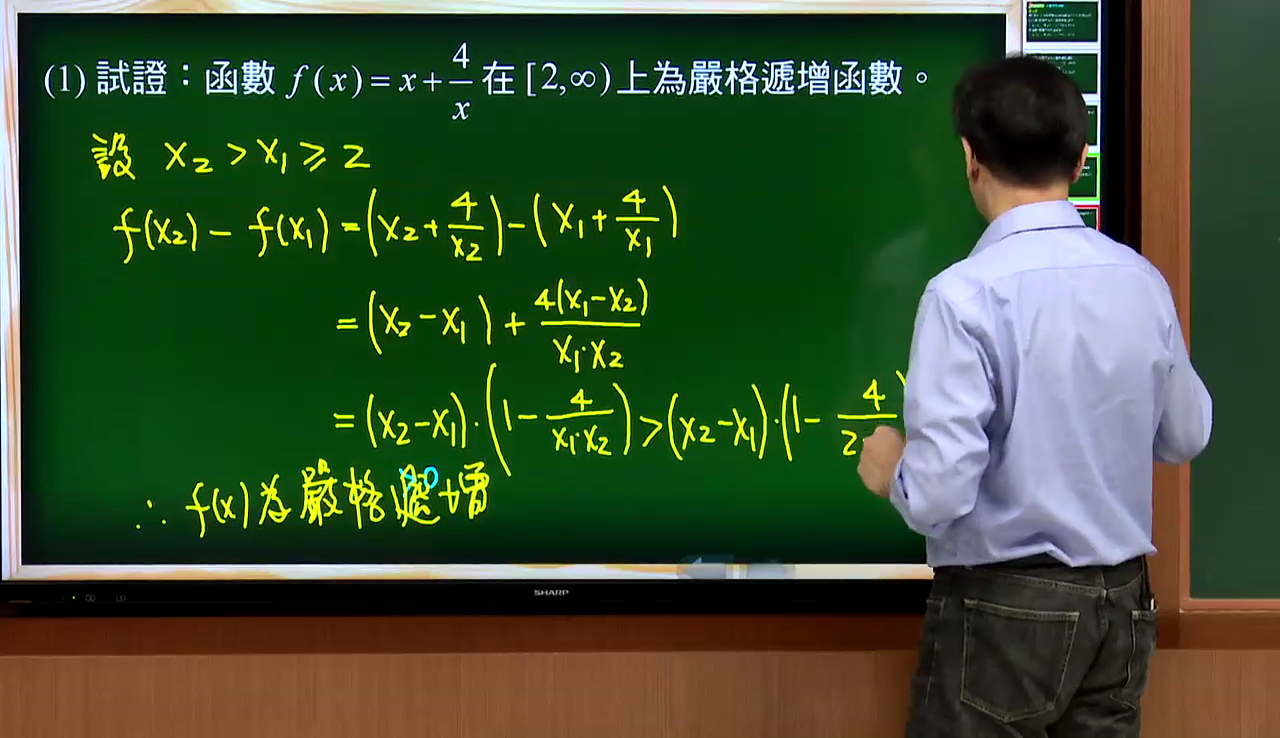 (1) 試證：函數 f(x) = x + 4/x 在 [2,∞) 上為嚴格遞增函數。
設 x₂ > x₁ ≥ 2
f(x₂) − f(x₁) = (x₂ + 4/x₂) − (x₁ + 4/x₁)
= (x₂ − x₁) + 4(x₁ − x₂)/(x₁·x₂)
= (x₂ − x₁)·(1 − 4/(x₁·x₂)) > (x₂ − x₁)·(1 − 4/2
∴ f(x) 為嚴格遞增
SHARP